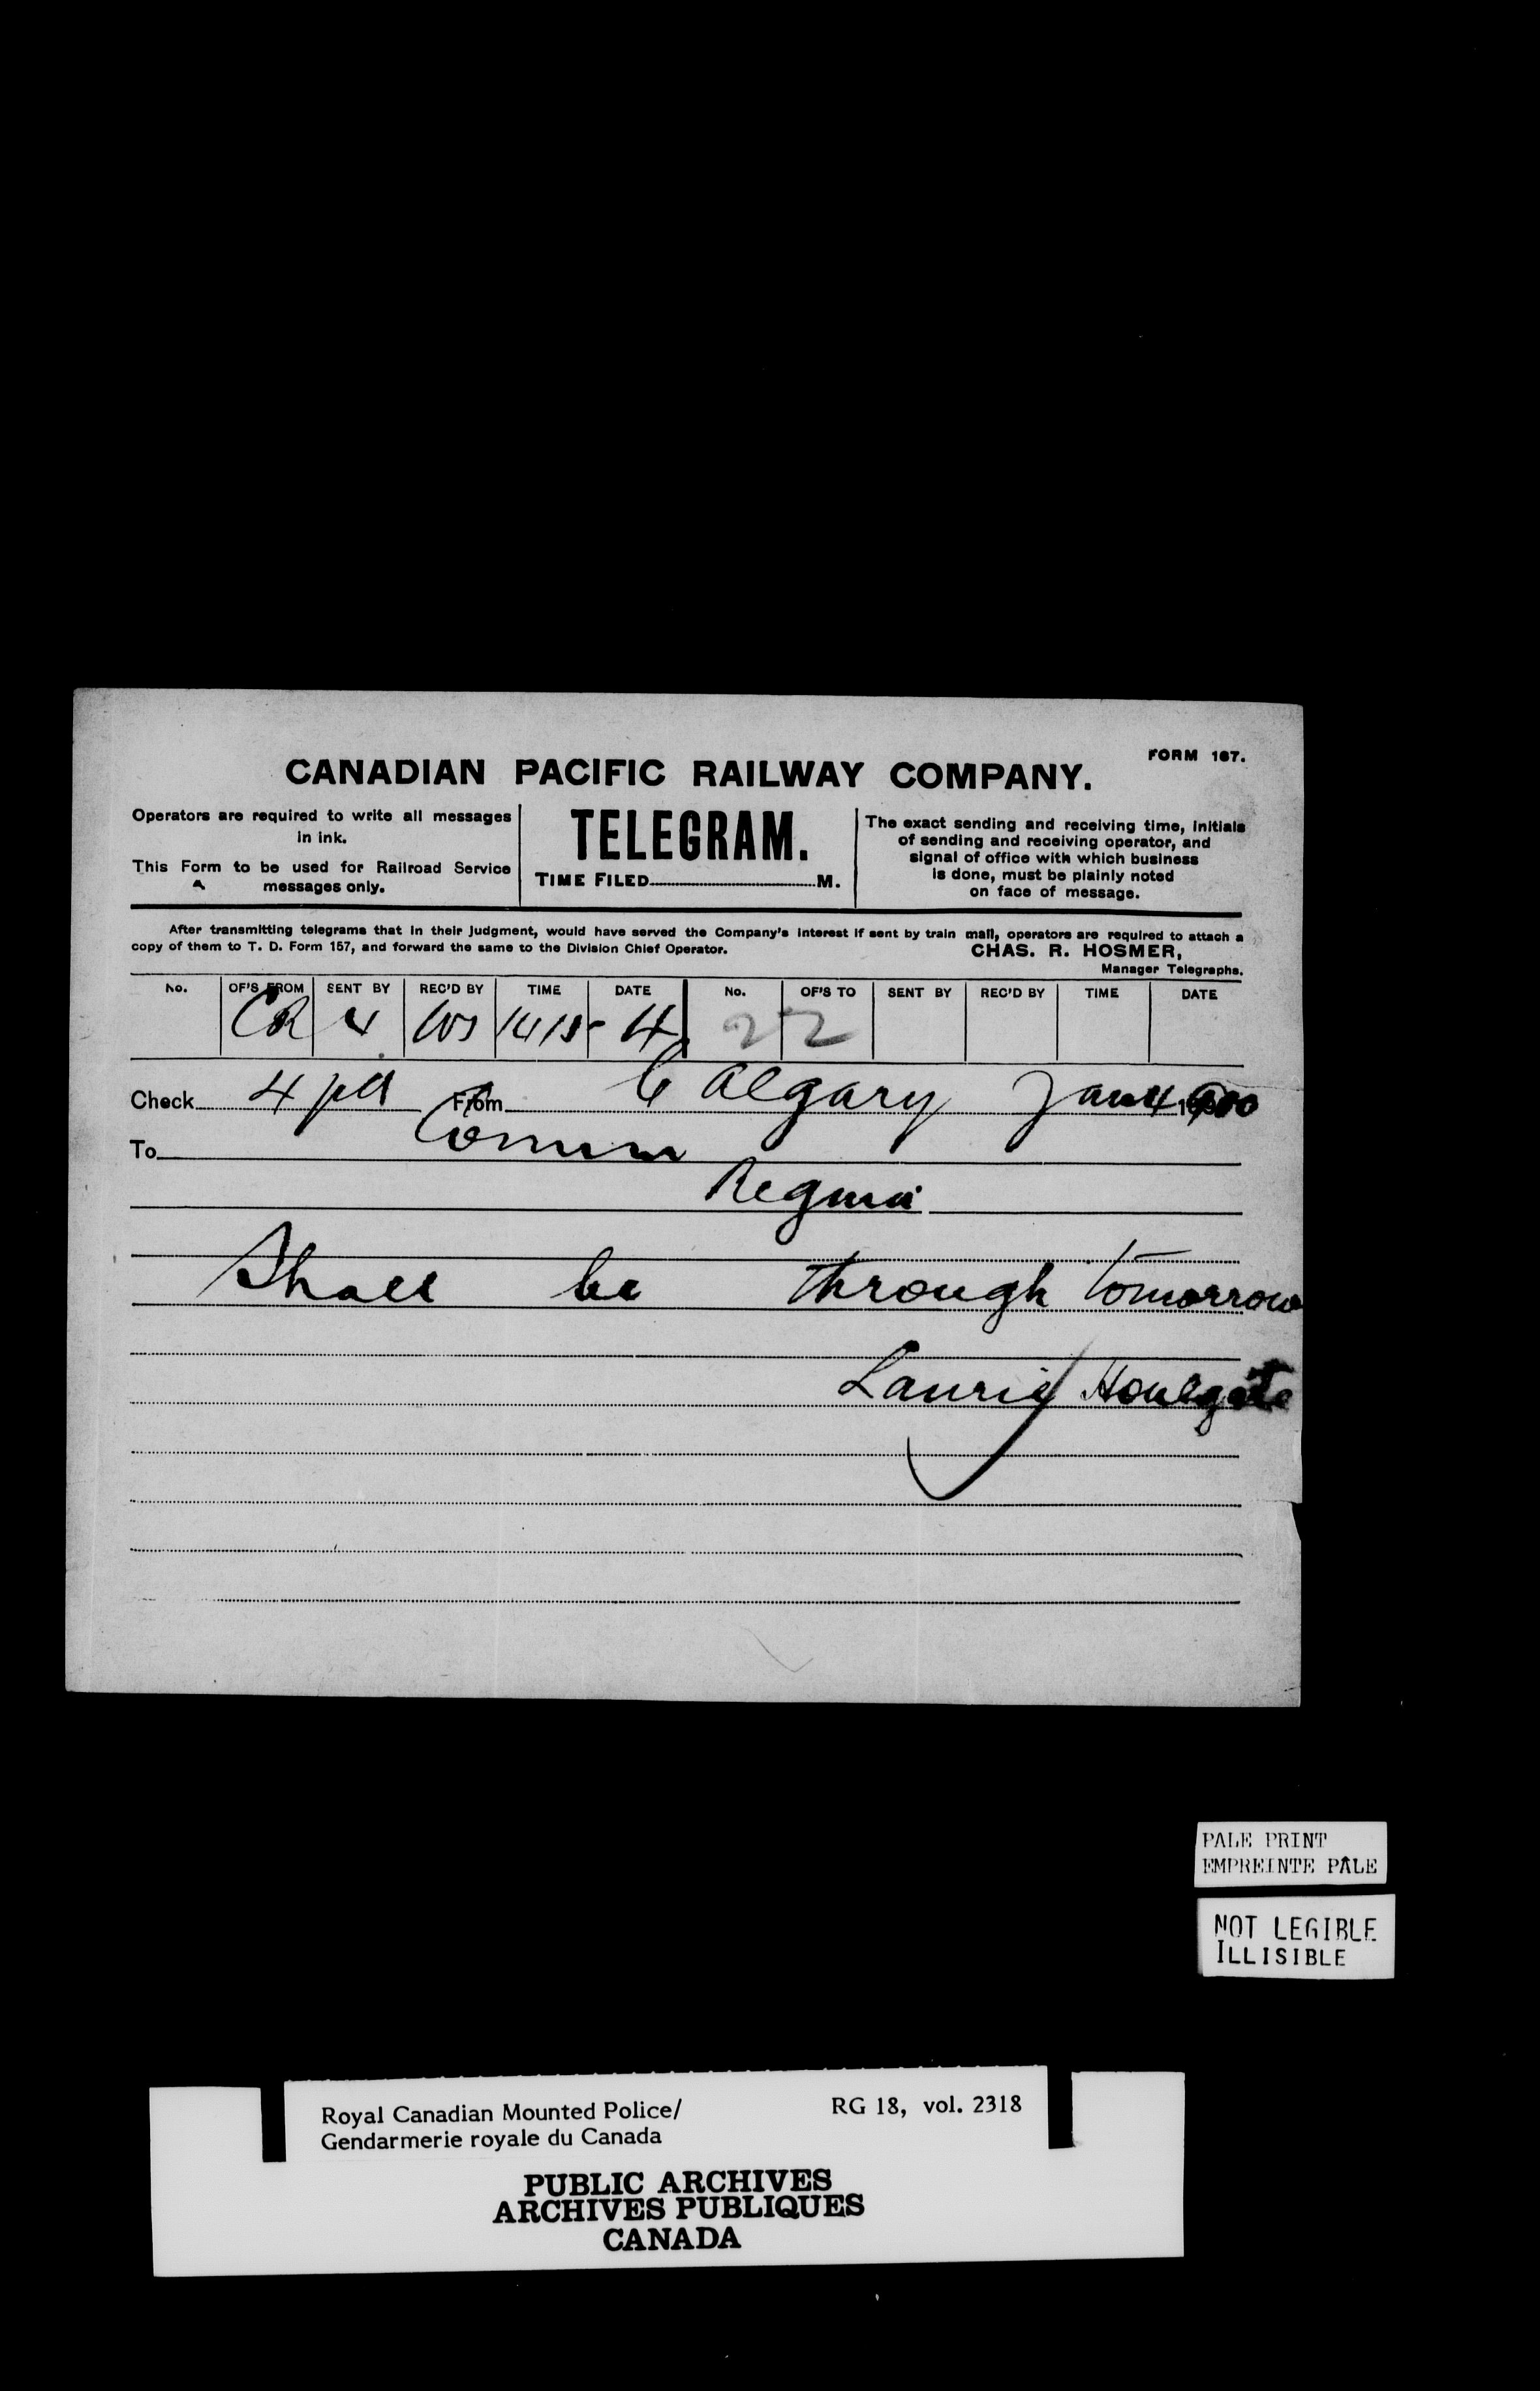 FORM 167.
CANADIAN PACIFIC RAILWAY COMPANY.
Operators are required to write all messages
in ink.
This Form to be used for Railroad Service
messages only.
TELEGRAM.
TIME FILED M.
The exact sending and receiving time, initials
of sending and receiving operator, and
signal of office with which business
is done, must be plainly noted
on face of message.
After transmitting telegrams that in their judgment, would have served the Company's interest if sent by train mail, operators are required to attach a
copy of them to T. D. Form 157, and forward the same to the Division Chief Operator.
CHAS. R. HOSMER,
Manager Telegraphs.
No. OF'S FROM SENT BY REC'D BY TIME DATE No. OF'S TO SENT BY REC'D BY TIME DATE
CR 4 22
Check 4 pd From Calgary Jany 4 1900
To Comm
Regina
Shall be through tomorrow
Laurie
PALE PRINT
EMPREINTE PÂLE
NOT LEGIBLE
ILLISIBLE
Royal Canadian Mounted Police/
Gendarmerie royale du Canada
RG 18, vol. 2318
PUBLIC ARCHIVES
ARCHIVES PUBLIQUES
CANADA